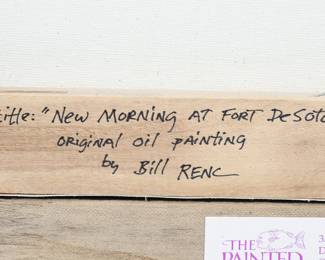 title: "New Morning at Fort DeSoto
original oil painting
by Bill Renc
THE
PAINTED
3
D